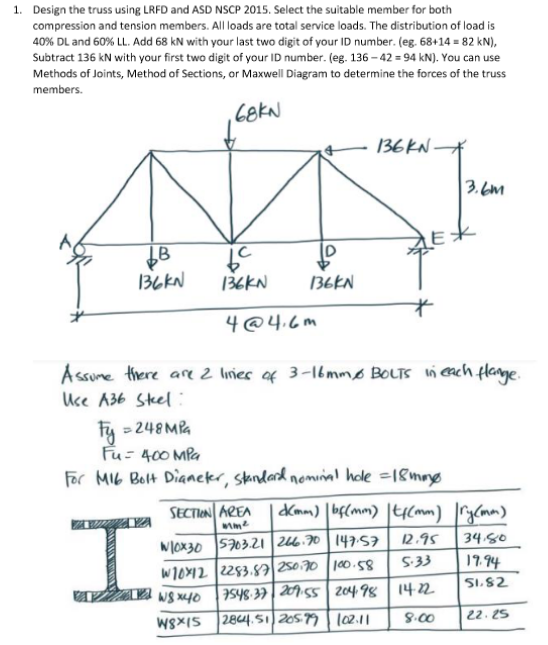 1. Design the truss using LRFD and ASD NSCP 2015. Select the suitable member for both
compression and tension members. All loads are total service loads. The distribution of load is
40% DL and 60% LL. Add 68 kN with your last two digit of your ID number. (eg. 68+14 = 82 kN),
Subtract 136 kN with your first two digit of your ID number. (eg. 136 – 42 = 94 kN). You can use
Methods of Joints, Method of Sections, or Maxwell Diagram to determine the forces of the truss
members.
68KN
136KN
3.6m
A
B
C
D
E
136KN
136KN
136KN
4 @ 4.6 m
Assume there are 2 lines of 3-16mmø BOLTS in each flange.
Use A36 Steel:
Fy = 248 MPa
Fu = 400 MPa
For M16 Bolt Diameter, standard nominal hole = 18mmø
SECTION AREA mm² d(mm) bf(mm) tf(mm) ry(mm)
W10X30 5703.21 266.70 147.57 12.95 34.80
W10X12 2283.87 250.70 100.58 5.33 19.94
W8X40 7548.37 209.55 204.98 14.22 51.82
W8X15 2864.51 205.99 102.11 8.00 22.25